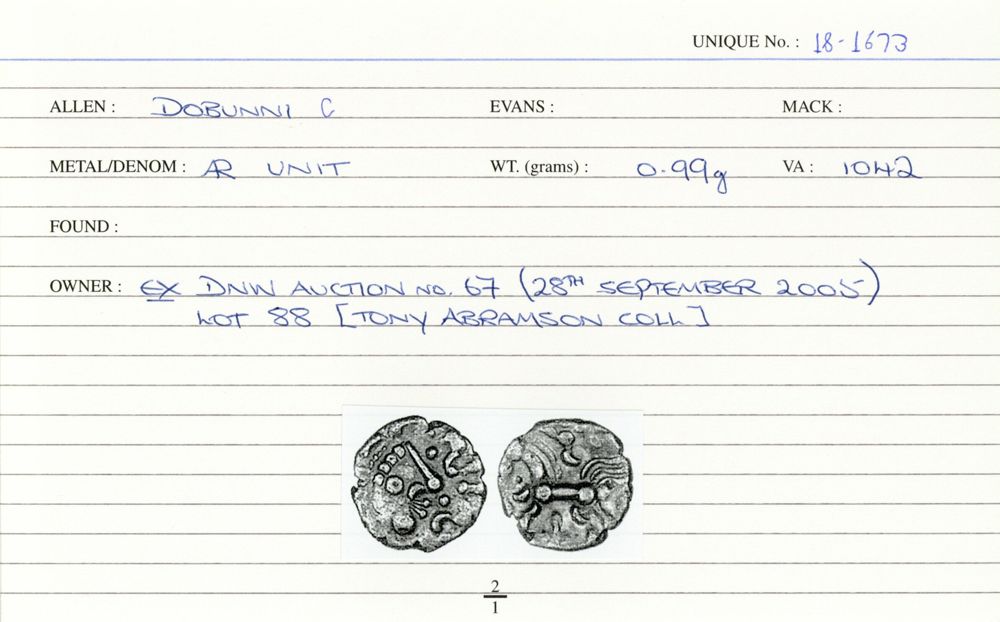 UNIQUE No. : 18-1673
ALLEN : DOBUNNI C EVANS : MACK :
METAL/DENOM : AR UNIT WT. (grams) : 0.99g VA : 1042
FOUND :
OWNER : EX DNW AUCTION NO. 67 (28TH SEPTEMBER 2005)
LOT 88 [TONY ABRAMSON COLL]
2
1